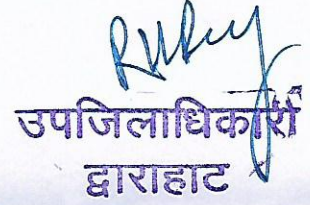 उपजिलाधिकारी
द्वाराहाट